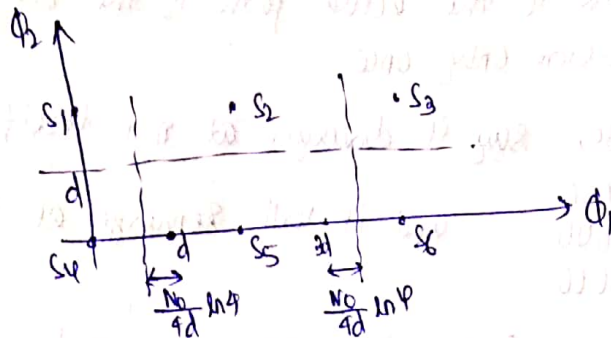 Φ2
S1
S2
S3
d
Φ1
S4
d
S5
2d
S6
N0/4d ln4
N0/4d ln4